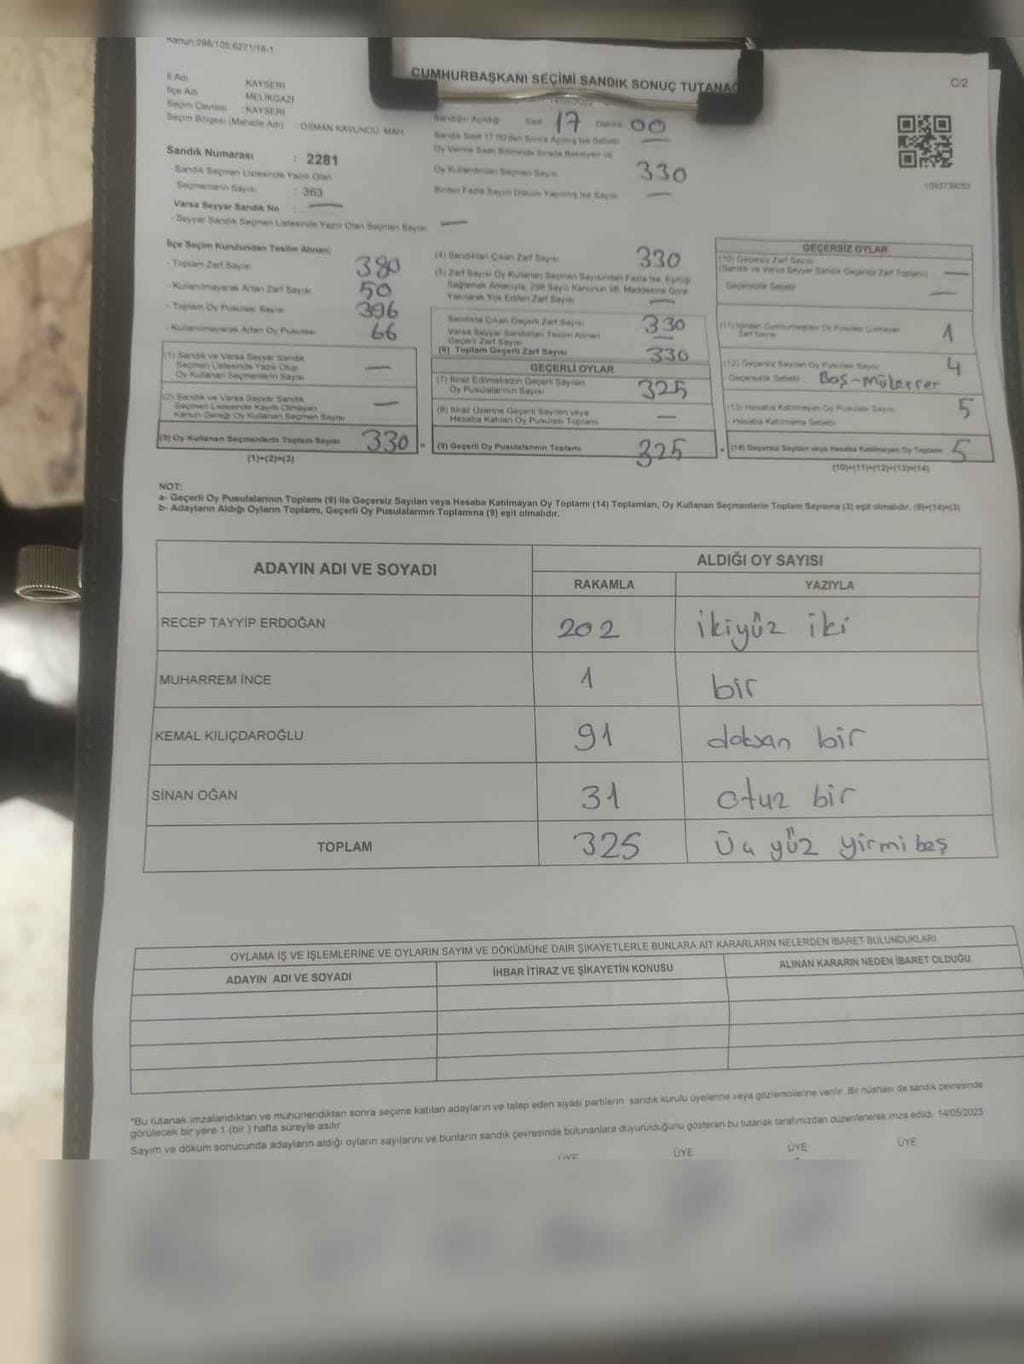 Kanun:298/105,6271/18-1
CUMHURBAŞKANI SEÇİMİ SANDIK SONUÇ TUTANAĞ
C/2
İl Adı KAYSERİ
İlçe Adı MELİKGAZİ
Seçim Çevresi : KAYSERİ
Seçim Bölgesi (Mahalle Adı) : OSMAN KAVUNCU MAH.
Sandık Numarası : 2281
- Sandık Seçmen Listesinde Yazılı Olan
Seçmenlerin Sayısı : 363
Varsa Seyyar Sandık No —
- Seyyar Sandık Seçmen Listesinde Yazılı Olan Seçmen Sayısı —
Sandığın Açıldığı Saat 17 Dakika 00
Oy Kullananları Seçmen Sayısı 330
Birden Fazla Sayım Döküm Yapılmış İse Sayısı —
İlçe Seçim Kurulundan Teslim Alınan;
- Toplam Zarf Sayısı 380
- Kullanılmayarak Artan Zarf Sayısı 50
- Toplam Oy Pusulası Sayısı 396
- Kullanılmayarak Artan Oy Pusulası 66
(1) Sandık ve Varsa Seyyar Sandık
Seçmen Listesinde Yazılı Olup
Oy Kullanan Seçmenlerin Sayısı —
(2) Sandık ve Varsa Seyyar Sandık
Seçmen Listesinde Kayıtlı Olmayan
Kanun Gereği Oy Kullanan Seçmen Sayısı —
(3) Oy Kullanan Seçmenlerin Toplam Sayısı 330 =
(1)+(2)=(3)
(4) Sandıktan Çıkan Zarf Sayısı 330
(5) Zarf Sayısı Oy Kullanan Seçmen Sayısından Fazla İse, Eşitliği
Sağlamak Amacıyla, 298 Sayılı Kanunun 98. Maddesine Göre
Yakılarak Yok Edilen Zarf Sayısı —
Sandıkta Çıkan Geçerli Zarf Sayısı 330
Varsa Seyyar Sandıktan Teslim Alınan
Geçerli Zarf Sayısı —
(6) Toplam Geçerli Zarf Sayısı 330
GEÇERLİ OYLAR
(7) İtiraz Edilmeksizin Geçerli Sayılan
Oy Pusulalarının Sayısı 325
(8) İtiraz Üzerine Geçerli Sayılan veya
Hesaba Katılan Oy Pusulası Toplamı —
(9) Geçerli Oy Pusulalarının Toplamı 325
GEÇERSİZ OYLAR
(10) Geçersiz Zarf Sayısı
(Sandık ve Varsa Seyyar Sandık Geçersiz Zarf Toplamı) —
Geçersizlik Sebebi —
Zarf Sayısı 1
(12) Geçersiz Sayılan Oy Pusulası Sayısı 4
- Geçersizlik Sebebi Boş-Mükerrer
(13) Hesaba Katılmayan Oy Pusulası Sayısı 5
- Hesaba Katılmama Sebebi
(14) Geçersiz Sayılan veya Hesaba Katılmayan Oy Toplamı 5
(10)+(11)+(12)+(13)=(14)
NOT:
a- Geçerli Oy Pusulalarının Toplamı (9) ile Geçersiz Sayılan veya Hesaba Katılmayan Oy Toplamı (14) Toplamları, Oy Kullanan Seçmenlerin Toplam Sayısına (3) eşit olmalıdır. (9)+(14)=(3)
b- Adayların Aldığı Oyların Toplamı, Geçerli Oy Pusulalarının Toplamına (9) eşit olmalıdır.
ADAYIN ADI VE SOYADI
ALDIĞI OY SAYISI
RAKAMLA YAZIYLA
RECEP TAYYİP ERDOĞAN 202 ikiyüz iki
MUHARREM İNCE 1 bir
KEMAL KILIÇDAROĞLU 91 doksan bir
SİNAN OĞAN 31 otuz bir
TOPLAM 325 Üç yüz yirmi beş
OYLAMA İŞ VE İŞLEMLERİNE VE OYLARIN SAYIM VE DÖKÜMÜNE DAİR ŞİKAYETLERLE BUNLARA AİT KARARLARIN NELERDEN İBARET BULUNDUKLARI
ADAYIN ADI VE SOYADI İHBAR İTİRAZ VE ŞİKAYETİN KONUSU ALINAN KARARIN NEDEN İBARET OLDUĞU
*Bu tutanak imzalandıktan ve mühürlendikten sonra seçime katılan adayların ve talep eden siyasi partilerin sandık kurulu üyelerine veya gözlemcilerine verilir. Bir nüshası da sandık çevresinde
görülecek bir yere 1 (bir ) hafta süreyle asılır.
Sayım ve döküm sonucunda adayların aldığı oyların sayılarını ve bunların sandık çevresinde bulunanlara duyurulduğunu gösteren bu tutanak tarafımızdan düzenlenerek imza edildi. 14/05/2023
ÜYE ÜYE ÜYE ÜYE